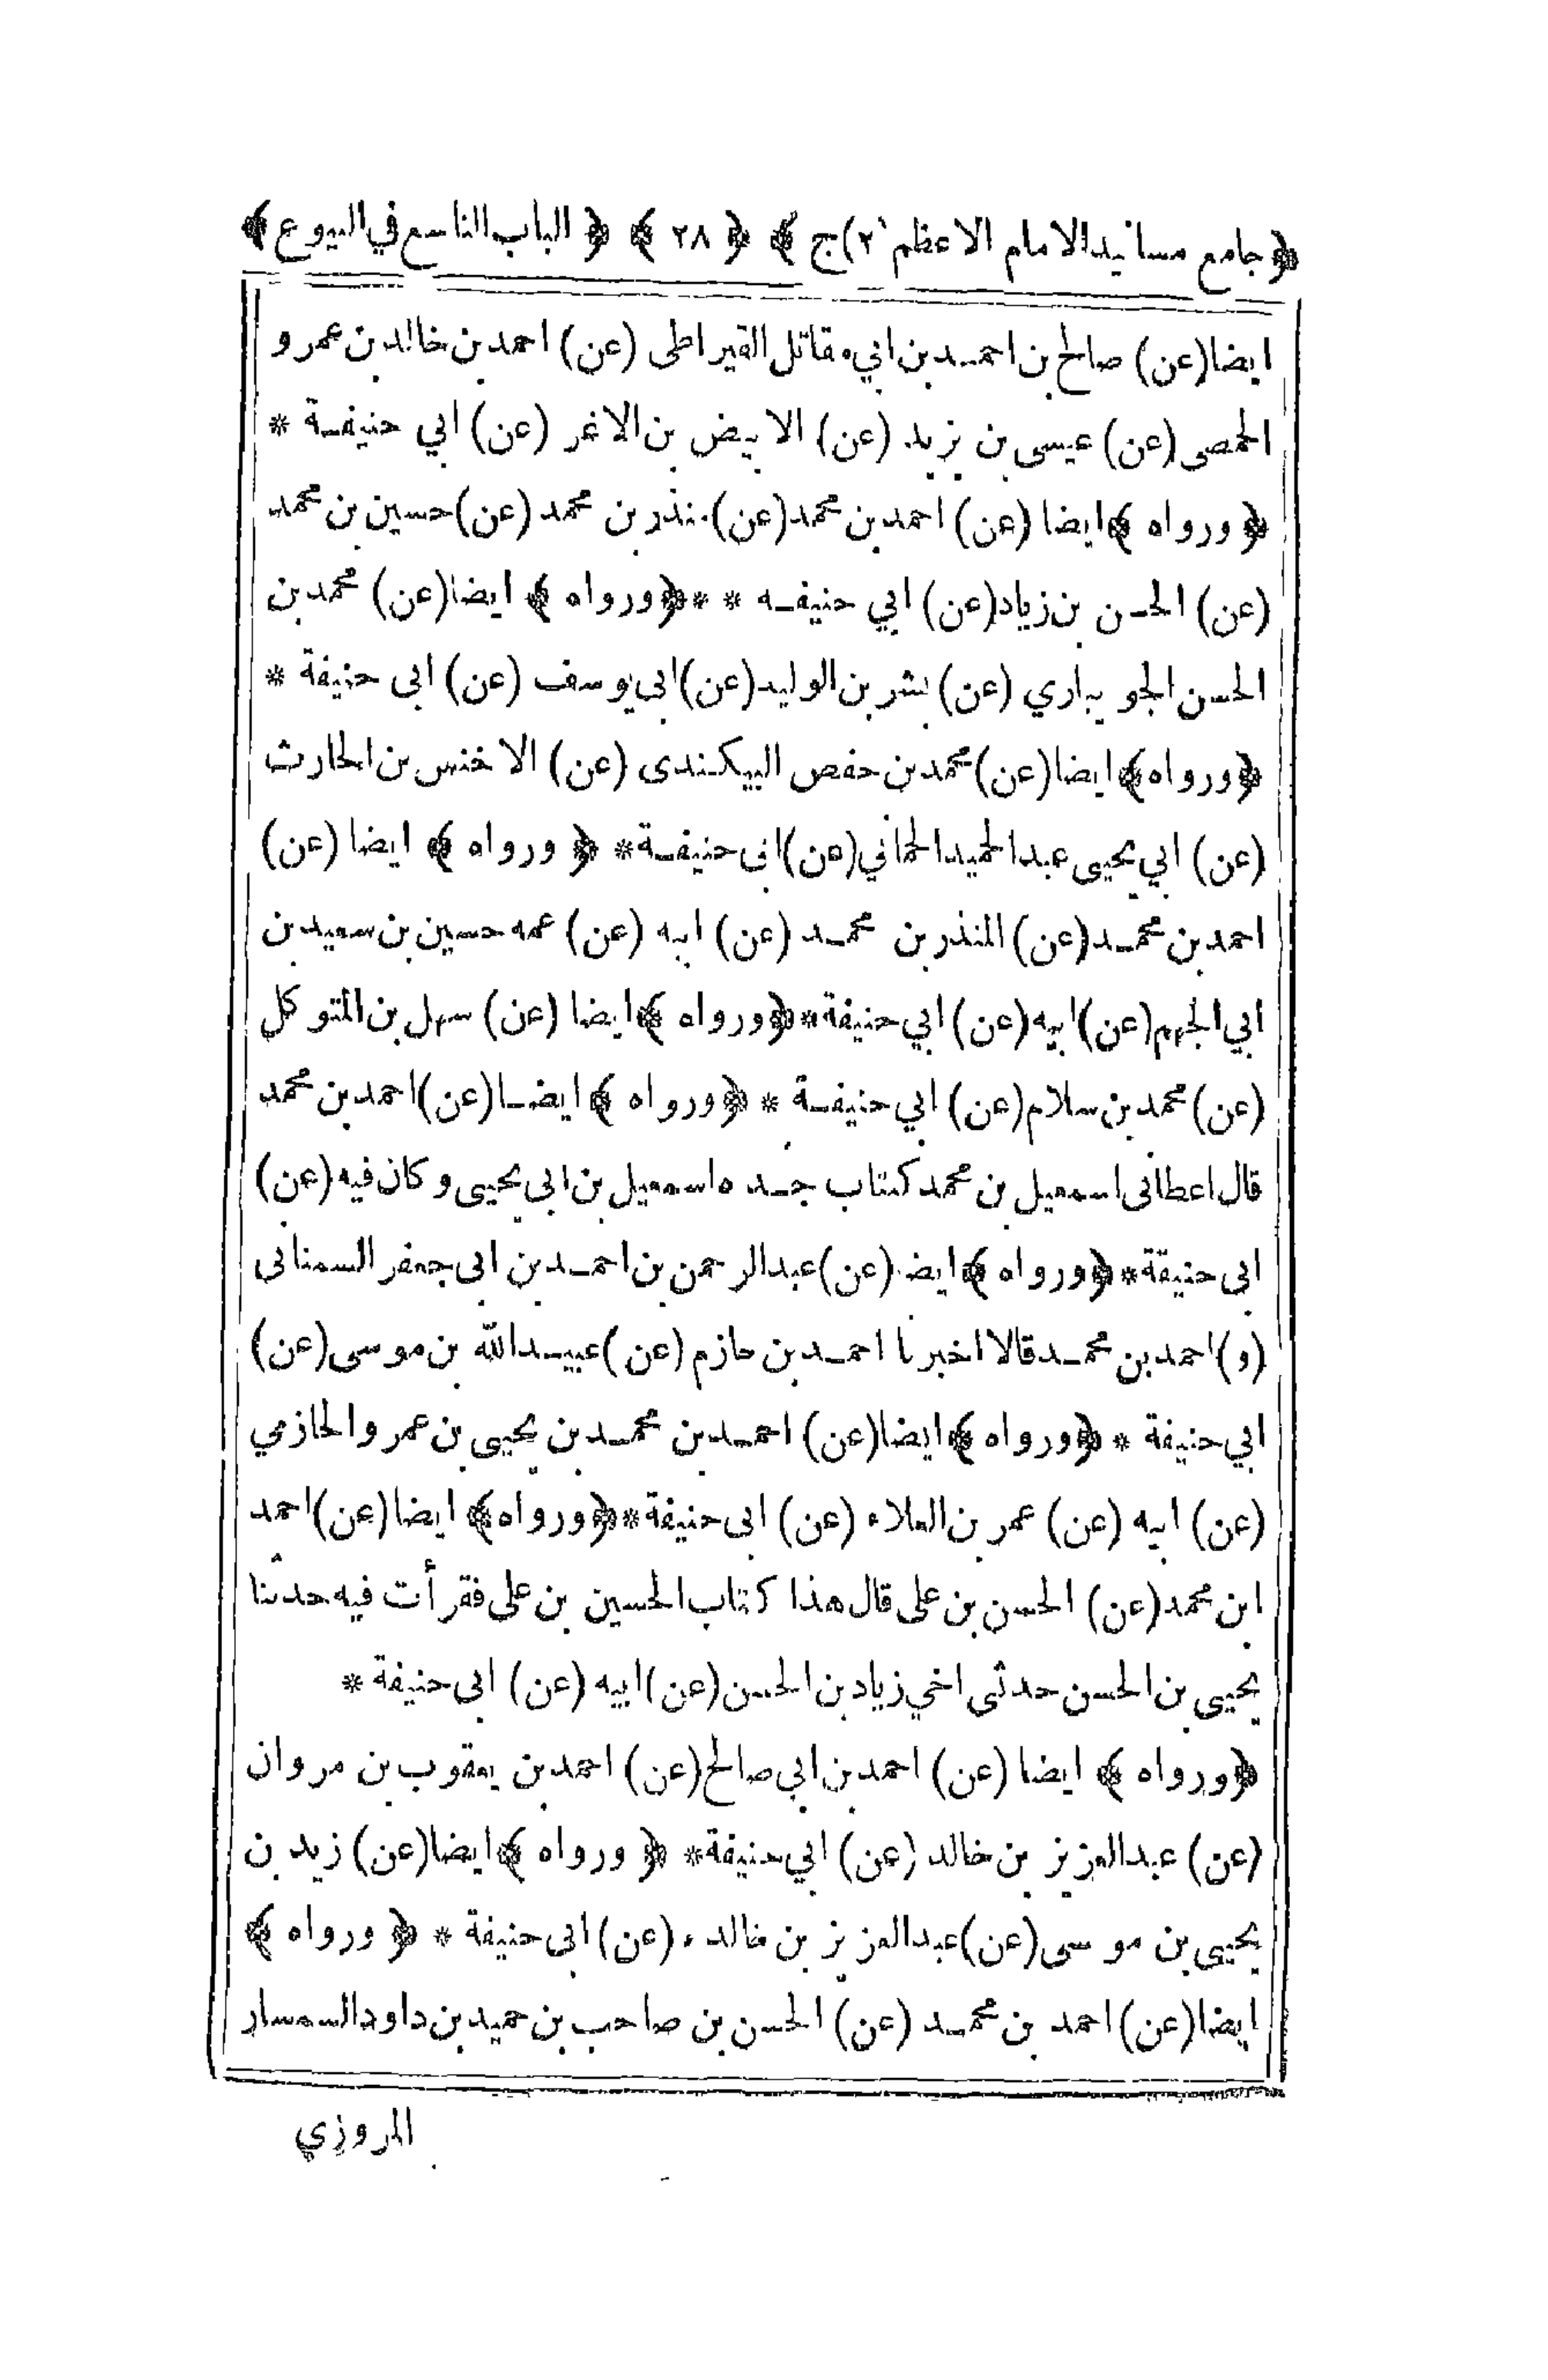 ﴿جامع مسانيد الامام الاعظم (٢)ج﴾ ﴿٢٨﴾ ﴿الباب التاسع في البيوع﴾
ايضا (عن) صالح بن احمد بن ابي مقاتل القيراطى (عن) احمد بن خالد بن عمرو
الحمصى (عن) عيسى بن يزيد (عن) الابيض بن الاغر (عن) ابي حنيفة *
﴿ورواه﴾ ايضا (عن) احمد بن محمد (عن) منذر بن محمد (عن) حسين بن محمد
(عن) الحسن بن زياد (عن) ابي حنيفه * * ﴿ورواه﴾ ايضا (عن) محمد بن
الحسن الجويباري (عن) بشر بن الوليد (عن) ابى يوسف (عن) ابى حنيفة *
﴿ورواه﴾ ايضا (عن) محمد بن حفص البيكندى (عن) الاخنس بن الحارث
(عن) ابي يحيى عبد الحميد الحماني (عن) ابى حنيفة * ﴿ورواه﴾ ايضا (عن)
احمد بن محمد (عن) المنذر بن محمد (عن) ابيه (عن) عمه حسين بن سعيد بن
ابي الجهم (عن) ابيه (عن) ابي حنيفة * ﴿ورواه﴾ ايضا (عن) سهل بن المتوكل
(عن) محمد بن سلام (عن) ابي حنيفة * ﴿ورواه﴾ ايضا (عن) احمد بن محمد
قال اعطانى اسمعيل بن محمد كتاب جده اسمعيل بن ابى يحيى وكان فيه (عن)
ابى حنيفة * ﴿ورواه﴾ ايضا (عن) عبد الرحمن بن احمد بن ابى جعفر السمنانى
(و) احمد بن محمد قالا اخبرنا احمد بن حازم (عن) عبيد الله بن موسى (عن)
ابي حنيفة * ﴿ورواه﴾ ايضا (عن) احمد بن محمد بن يحيى بن عمرو الحازمي
(عن) ابيه (عن) عمر بن العلاء (عن) ابى حنيفة * ﴿ورواه﴾ ايضا (عن) احمد
ابن محمد (عن) الحسن بن على قال هذا كتاب الحسين بن على فقرأت فيه حدثنا
يحيى بن الحسن حدثى اخي زياد بن الحسن (عن) ابيه (عن) ابى حنيفة *
﴿ورواه﴾ ايضا (عن) احمد بن ابي صالح (عن) احمد بن يعقوب بن مروان
(عن) عبد العزيز بن خالد (عن) ابي حنيفة * ﴿ورواه﴾ ايضا (عن) زيد بن
يحيى بن موسى (عن) عبد العزيز بن خالد (عن) ابى حنيفة * ﴿ورواه﴾
ايضا (عن) احمد بن محمد (عن) الحسن بن صاحب بن حميد بن داود السمسار
المروزي